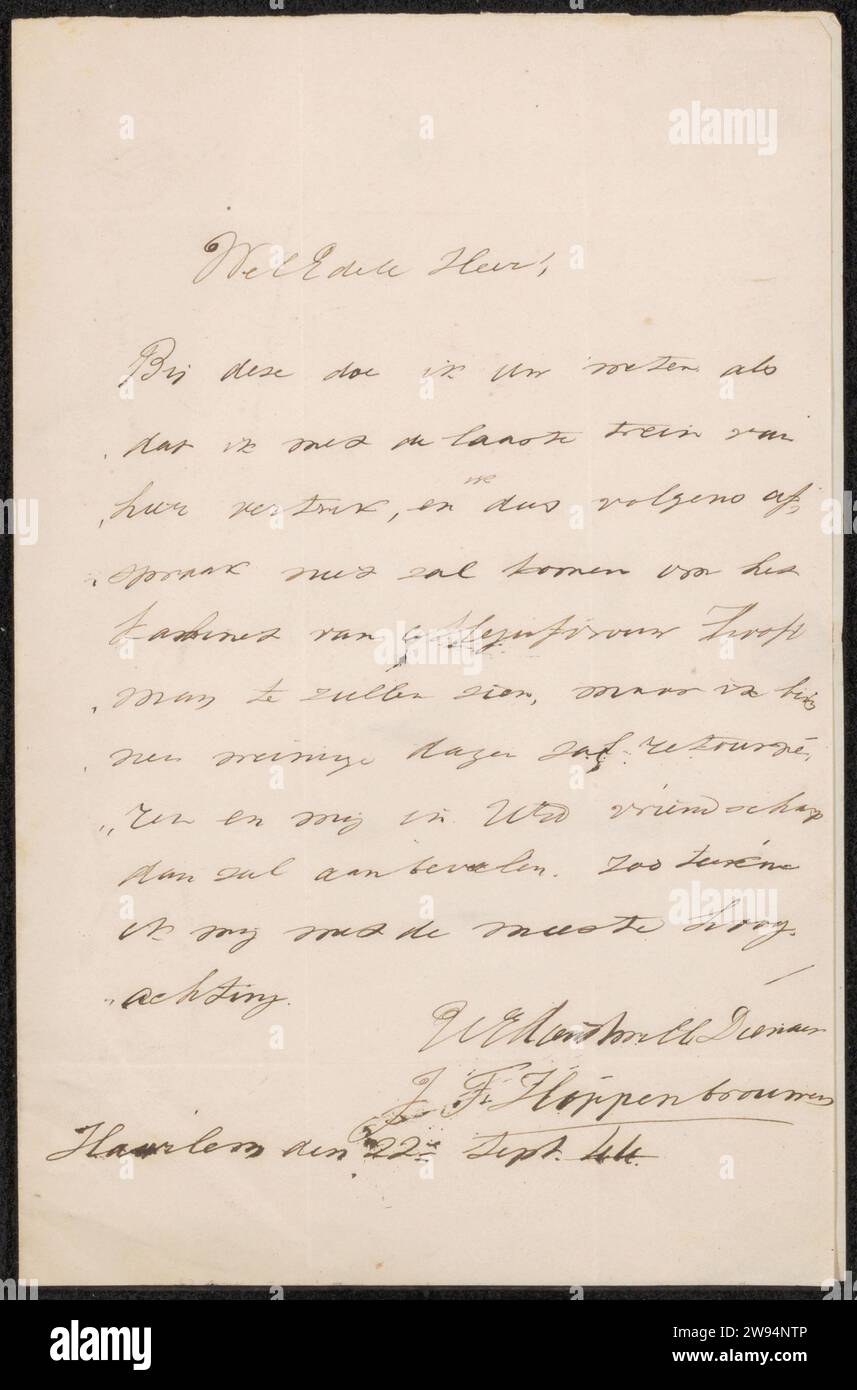 WelEdele Heer!
Bij dese doe ik uw weten als
dat ik met de laaste trein van
hier vertrek, en ik dus volgens af,
,,spraak niet zal komen om het
kabinet van Mejufvrouw Hooft
man te zullen zien, maar ik bin
nen weinige dagen zal retourne,
,,ren en mij in UEd vriendschap
dan zal aanbevelen. zoo teeken
ik mij met de meeste hoog,
,,achting.
Dienaar
J. F. Hoppenbrouwers
Haarlem den 22e Sept. 44.
alamy
a
Image ID: 2W94NTP
www.alamy.com